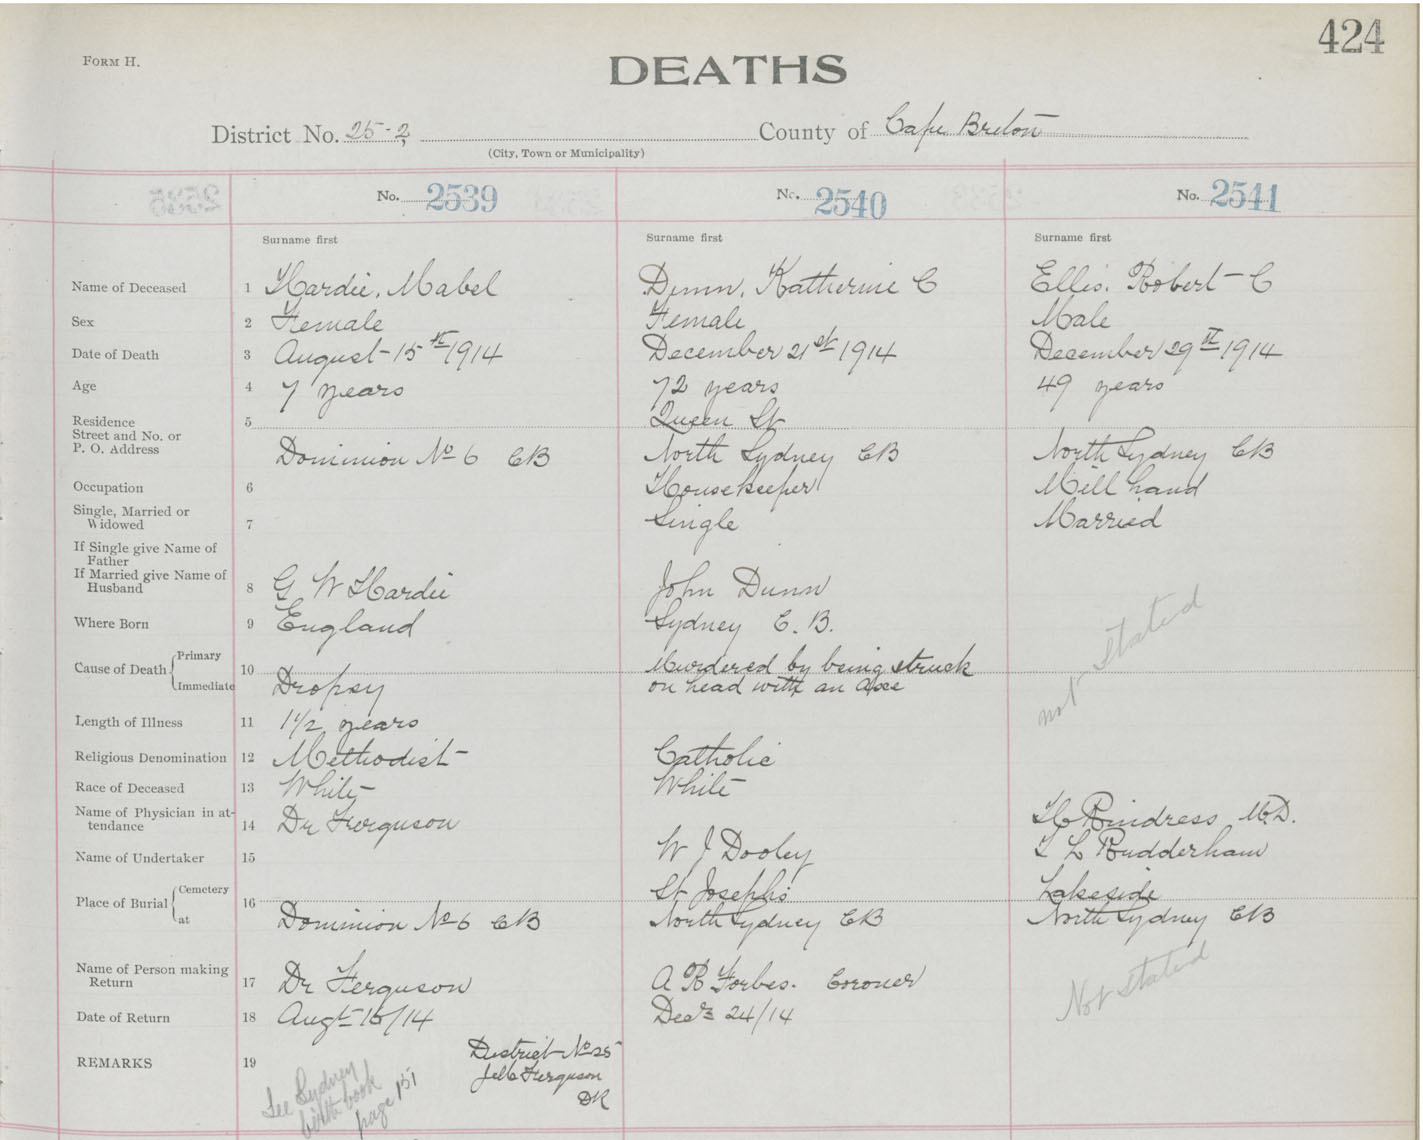 424
FORM H.
DEATHS
District No. 25-2 County of Cape Breton
(City, Town or Municipality)
No. 2539 No. 2540 No. 2541
Surname first Surname first Surname first
Name of Deceased 1 Hardie, Mabel Dunn, Katherine C Ellis, Robert C
Sex 2 Female Female Male
Date of Death 3 August 15th 1914 December 21st 1914 December 29th 1914
Age 4 7 years 72 years 49 years
Residence 5 Queen St
Street and No. or
P. O. Address Dominion No 6 CB North Sydney CB North Sydney CB
Occupation 6 Housekeeper Mill hand
Single, Married or
Widowed 7 Single Married
If Single give Name of
Father
If Married give Name of
Husband 8 G W Hardie John Dunn
Where Born 9 England Sydney C. B.
Cause of Death Primary 10 Murdered by being struck not stated
Immediate Dropsy on head with an axe
Length of Illness 11 1 1/2 years
Religious Denomination 12 Methodist Catholic
Race of Deceased 13 White White
Name of Physician in at-
tendance 14 Dr Ferguson Rindress M.D.
Name of Undertaker 15 W J Dooley L Rudderham
Place of Burial Cemetery 16 St Josephs Lakeside
at Dominion No 6 CB North Sydney CB North Sydney CB
Name of Person making
Return 17 Dr Ferguson A R Forbes. Coroner Not Stated
Date of Return 18 Augt 15/14 Decr 24/14
REMARKS 19 District No 25
Ferguson
DR
See Sydney
birth book
page 151